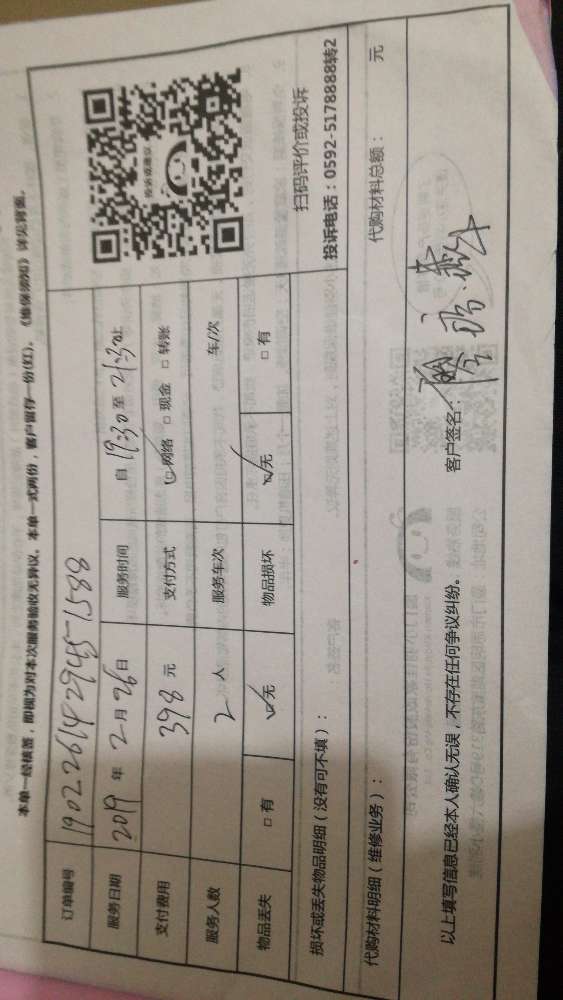 本单一经核签，即视为对本次服务验收无异议。本单一式两份，客户留存一份(红)。《维保须知》详见背面。
订单编号 19022614294571588
服务日期 2019 年 2 月 26 日 服务时间 自 19:30 至 21:30 止
支付费用 398 元 支付方式 ☑网络 □现金 □转账
服务人数 2 人 服务车次 车/次
物品丢失 □有 ☑无 物品损坏 ☑无 □有
投诉或建议
扫码评价或投诉
投诉电话：0592-5178888转2
损坏或丢失物品明细（没有可不填）：
代购材料明细（维修业务）： 代购材料总额： 元
以上填写信息已经本人确认无误，不存在任何争议纠纷。 客户签名：